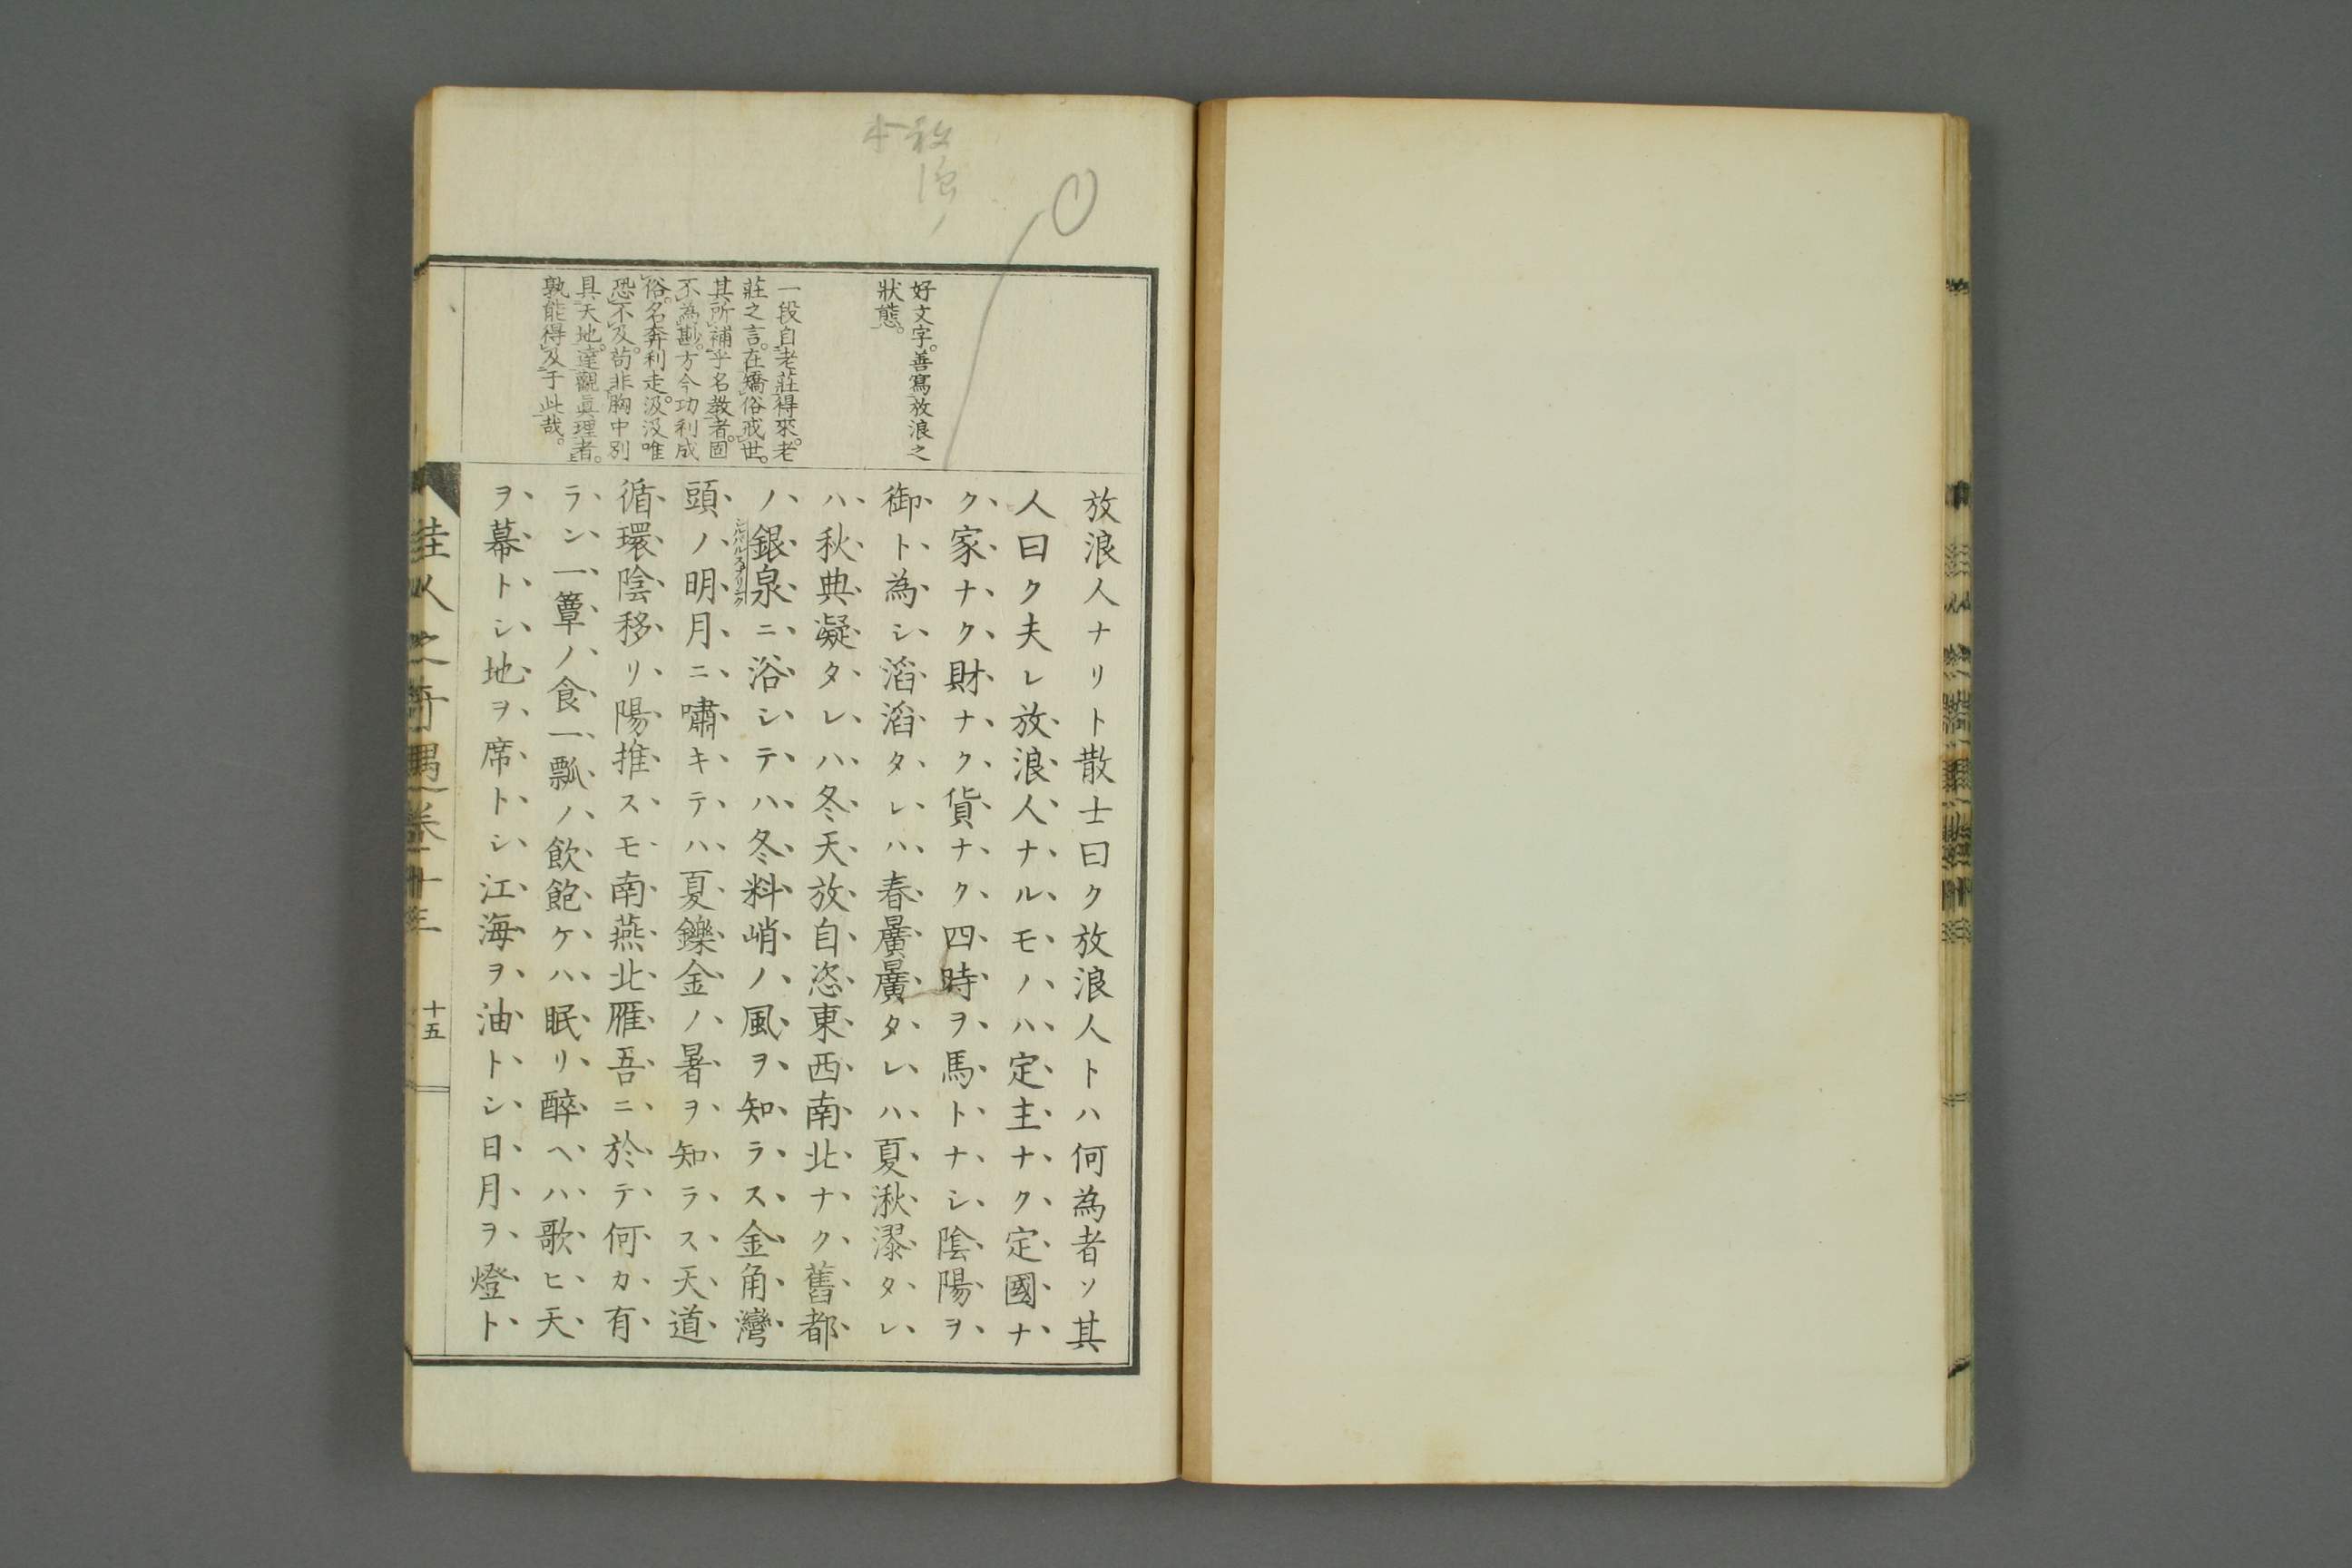 好文字。善寫放浪之
狀態。
一段自老莊得來。老
莊之言。在矯俗戒世。
其所補乎名教者。固
不為尠。方今功利成
俗。名奔利走。汲汲唯
恐不及。苟非胸中別
具天地。達觀眞理者。
孰能得及于此哉。
放浪人ナリト散士曰ク放浪人トハ何為者ソ其
人曰ク夫レ放浪人ナルモノハ定主ナク定國ナ
ク家ナク財ナク貨ナク四時ヲ馬トナシ陰陽ヲ
御ト為シ滔滔タレハ春㬥㬥タレハ夏湫漻タレ
ハ秋典凝タレハ冬天放自恣東西南北ナク舊都
ノ銀泉ニ浴シテハ冬料峭ノ風ヲ知ラス金角灣
頭ノ明月ニ嘯キテハ夏鑠金ノ暑ヲ知ラス天道
循環陰移リ陽推スモ南燕北雁吾ニ於テ何カ有
ラン一簞ノ食一瓢ノ飲飽ケハ眠リ醉ヘハ歌ヒ天
ヲ幕トシ地ヲ席トシ江海ヲ油トシ日月ヲ燈ト
佳人之奇遇卷十三
十五